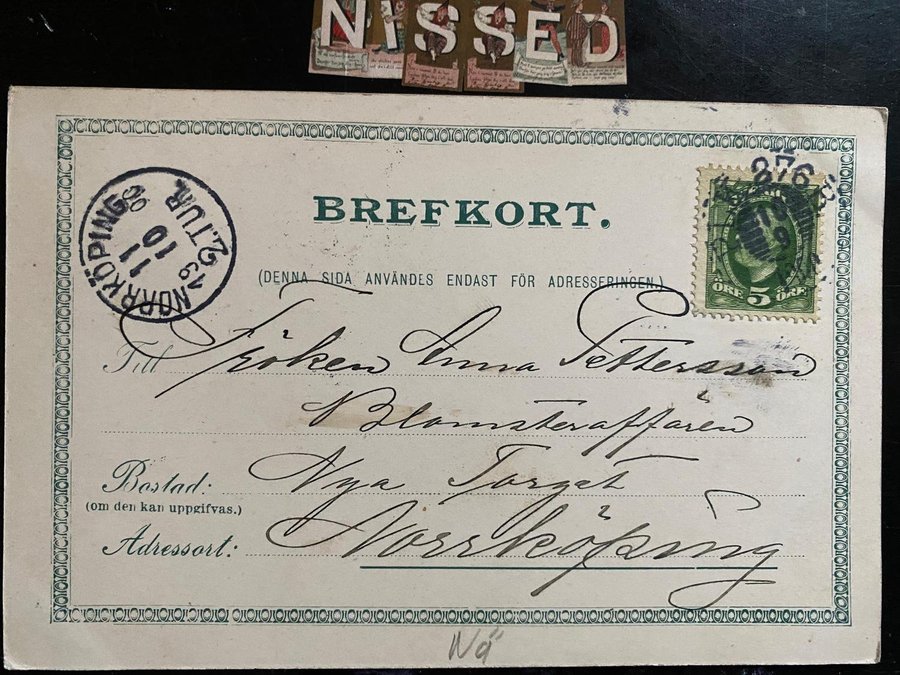 NISSED
BREFKORT.
(DENNA SIDA ANVÄNDES ENDAST FÖR ADRESSERINGEN.)
NORRKÖPING
11
10
2.TUR.
376
ÖRE 5 ÖRE
Till Fröken Anna Pettersson
Blomsteraffären
Bostad: Nya Torget
(om den kan uppgifvas.)
Adressort: Norrköping